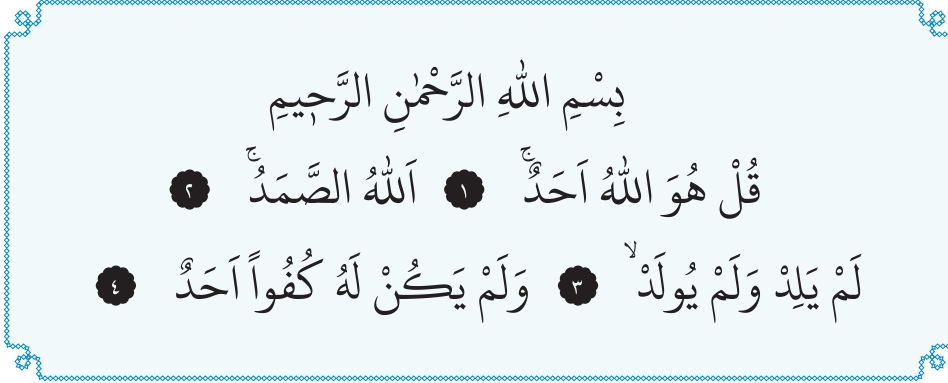 بِسْمِ اللّٰهِ الرَّحْمٰنِ الرَّح۪يمِ
قُلْ هُوَ اللّٰهُ اَحَدٌۚ ١ اَللّٰهُ الصَّمَدُۚ ٢
لَمْ يَلِدْ وَلَمْ يُولَدْۙ ٣ وَلَمْ يَكُنْ لَهُ كُفُواً اَحَدٌ ٤